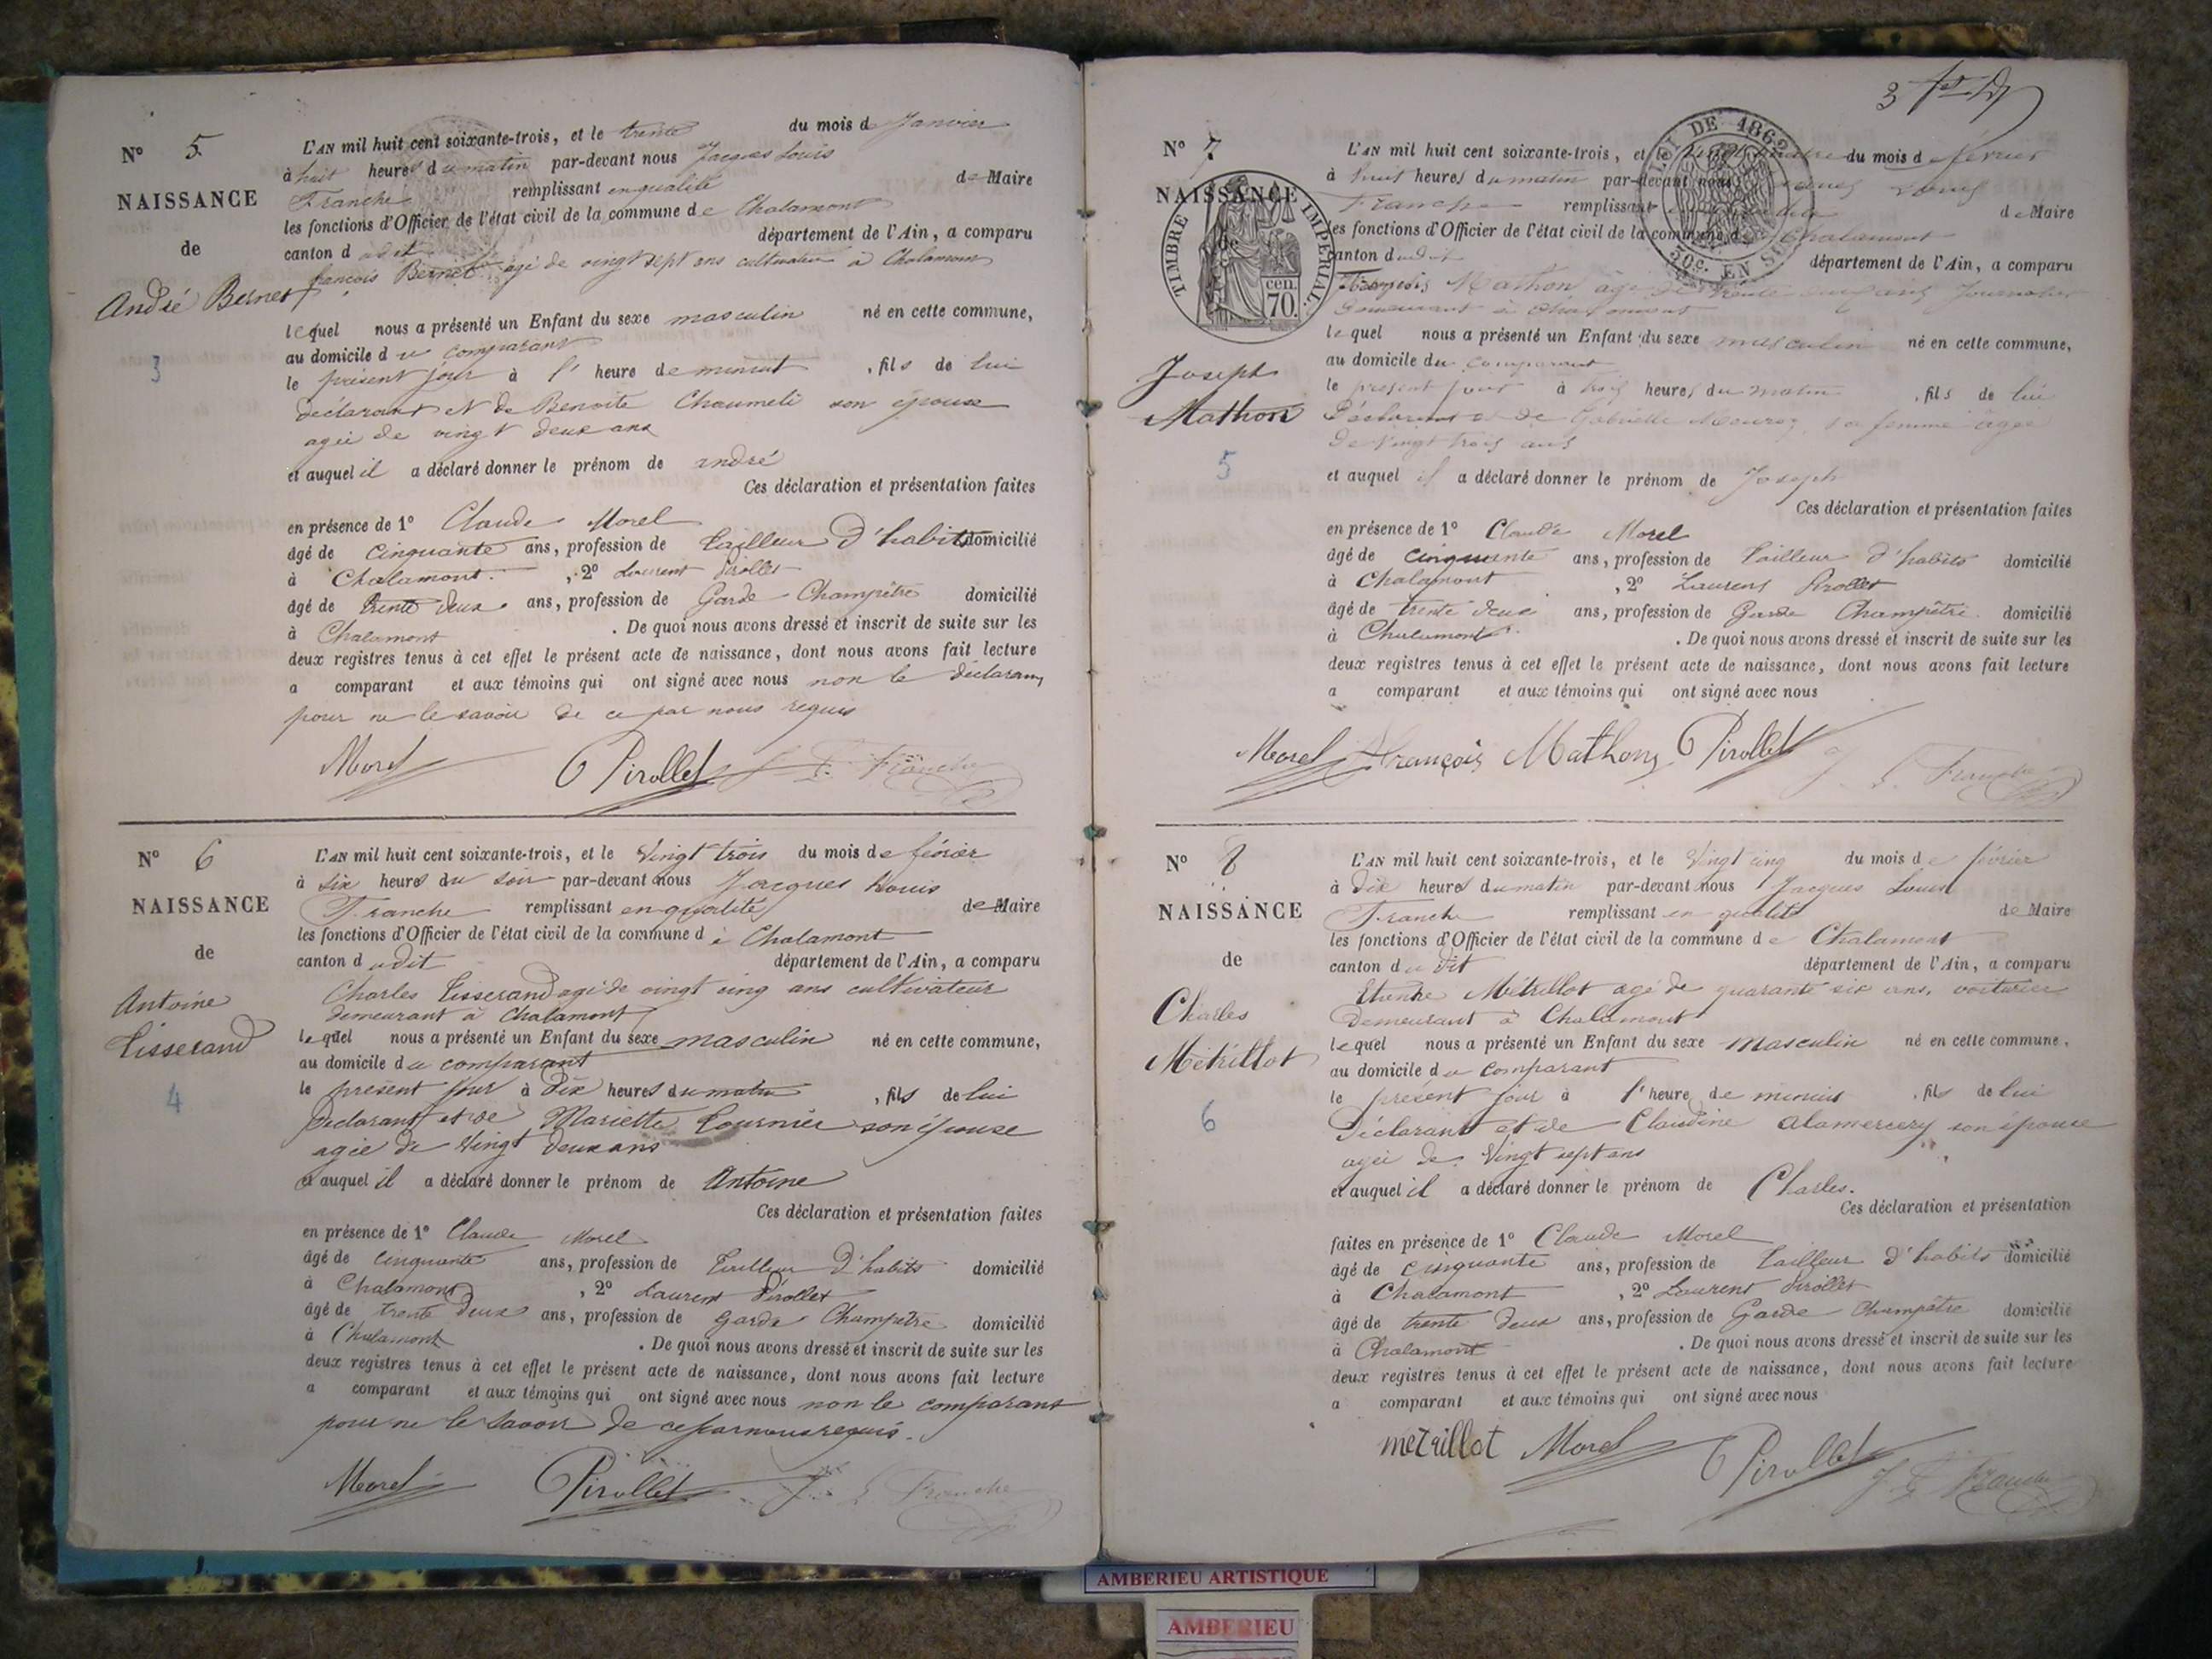 N° 5.
NAISSANCE
de
André Bernet
3
L'AN mil huit cent soixante-trois, et le trente du mois de Janvier
à huit heures du matin par-devant nous Jacques Louis
Franche remplissant en qualité de Maire
les fonctions d'Officier de l'état civil de la commune de Chalamont
canton dudit département de l'Ain, a comparu
françois Bernet agé de vingt sept ans cultivateur à Chalamont
lequel nous a présenté un Enfant du sexe masculin né en cette commune,
au domicile du comparant
le présent jour à l' heure de minuit , fils de lui
déclarant et de Benoite Chaumeli son épouse
agée de vingt deux ans
et auquel il a déclaré donner le prénom de andré
Ces déclaration et présentation faites
en présence de 1° Claude Morel
âgé de cinquante ans, profession de tailleur d'habits domicilié
à Chalamont. , 2° Laurent Pirollet
âgé de trente deux ans, profession de Garde Champêtre domicilié
à Chalamont . De quoi nous avons dressé et inscrit de suite sur les
deux registres tenus à cet effet le présent acte de naissance, dont nous avons fait lecture
a comparant et aux témoins qui ont signé avec nous non le déclarant
pour ne le savoir de ce par nous requis
Morel Pirollet J L Franche
N° 6
NAISSANCE
de
Antoine
Tisserand
4
L'AN mil huit cent soixante-trois, et le Vingt trois du mois de février
à six heures du soir par-devant nous Jacques Louis
Franche remplissant en qualité de Maire
les fonctions d'Officier de l'état civil de la commune de Chalamont
canton dudit département de l'Ain, a comparu
Charles Tisserand agé de vingt cinq ans cultivateur
demeurant à Chalamont
lequel nous a présenté un Enfant du sexe masculin né en cette commune,
au domicile du comparant
le présent jour à dix heures du matin , fils de lui
Déclarant et de Mariette Fournier son épouse
agée de Vingt deux ans
et auquel il a déclaré donner le prénom de Antoine
Ces déclaration et présentation faites
en présence de 1° Claude Morel
âgé de cinquante ans, profession de Tailleur d'habits domicilié
à Chalamont , 2° Laurent Pirollet
âgé de trente deux ans, profession de Garde Champêtre domicilié
à Chalamont . De quoi nous avons dressé et inscrit de suite sur les
deux registres tenus à cet effet le présent acte de naissance, dont nous avons fait lecture
a comparant et aux témoins qui ont signé avec nous non le comparant
pour ne le savoir de ce par nous requis.
Morel Pirollet J L Franche
3
N° 7
NAISSANCE
de
TIMBRE IMPÉRIAL
70 cen.
LOI DE 1862
50c. EN SUS
Joseph
Mathon
5
L'AN mil huit cent soixante-trois, et le Vingt quatre du mois de février
à huit heures du matin par-devant nous Jacques Louis
Franche remplissant de Maire
les fonctions d'Officier de l'état civil de la commune de Chalamont
canton dudit département de l'Ain, a comparu
François Mathon âgé de trente ans Journalier
Demeurant à Chalamont
lequel nous a présenté un Enfant du sexe masculin né en cette commune,
au domicile du comparant
le présent jour à trois heures du matin , fils de lui
Déclarant et de Gabrielle sa femme âgée
de vingt trois ans
et auquel il a déclaré donner le prénom de Joseph
Ces déclaration et présentation faites
en présence de 1° Claude Morel
âgé de cinquante ans, profession de tailleur d'habits domicilié
à Chalamont , 2° Laurent Pirollet
âgé de trente deux ans, profession de Garde Champêtre domicilié
à Chalamont . De quoi nous avons dressé et inscrit de suite sur les
deux registres tenus à cet effet le présent acte de naissance, dont nous avons fait lecture
a comparant et aux témoins qui ont signé avec nous
Morel François Mathon Pirollet J L Franche
N° 8
NAISSANCE
de
Charles
Métrillot
6
L'AN mil huit cent soixante-trois, et le Vingt cinq du mois de février
à dix heures du matin par-devant nous Jacques Louis
Franche remplissant en qualité de Maire
les fonctions d'Officier de l'état civil de la commune de Chalamont
canton du dit département de l'Ain, a comparu
Etienne Métrillot agé de quarante six ans, voiturier
Demeurant à Chalamont
lequel nous a présenté un Enfant du sexe masculin né en cette commune,
au domicile du comparant
le présent jour à l' heure de minuit , fils de lui
Déclarant et de Claudine Alamercery son épouse
agée de Vingt sept ans
et auquel il a déclaré donner le prénom de Charles.
Ces déclaration et présentation
faites en présence de 1° Claude Morel
âgé de cinquante ans, profession de tailleur d'habits domicilié
à Chalamont , 2° Laurent Pirollet
âgé de trente deux ans, profession de Garde Champêtre domicilié
à Chalamont . De quoi nous avons dressé et inscrit de suite sur les
deux registres tenus à cet effet le présent acte de naissance, dont nous avons fait lecture
a comparant et aux témoins qui ont signé avec nous
metrillot Morel Pirollet J L Franche
AMBERIEU ARTISTIQUE
AMBERIEU